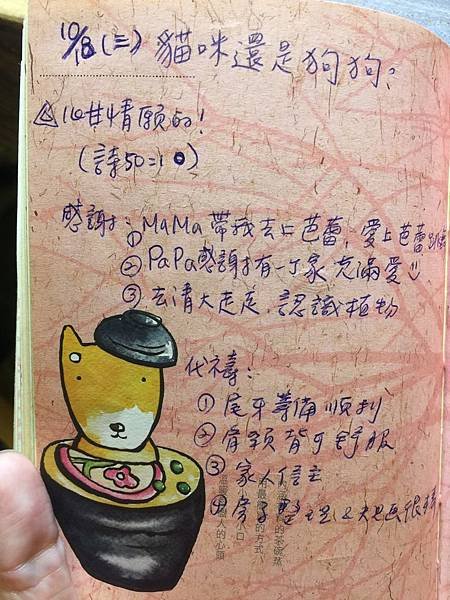 10/18(三) 貓咪還是狗狗?
心甘情願的!
(詩50=1
感謝:① MaMa 帶我去上芭蕾, 愛上芭蕾
② PaPa感謝有一個家 充滿愛
③ 去清大走走, 認識植物
代禱:
① 尾牙籌備順利
② 肩頸背可舒服
③ 家人信主
④